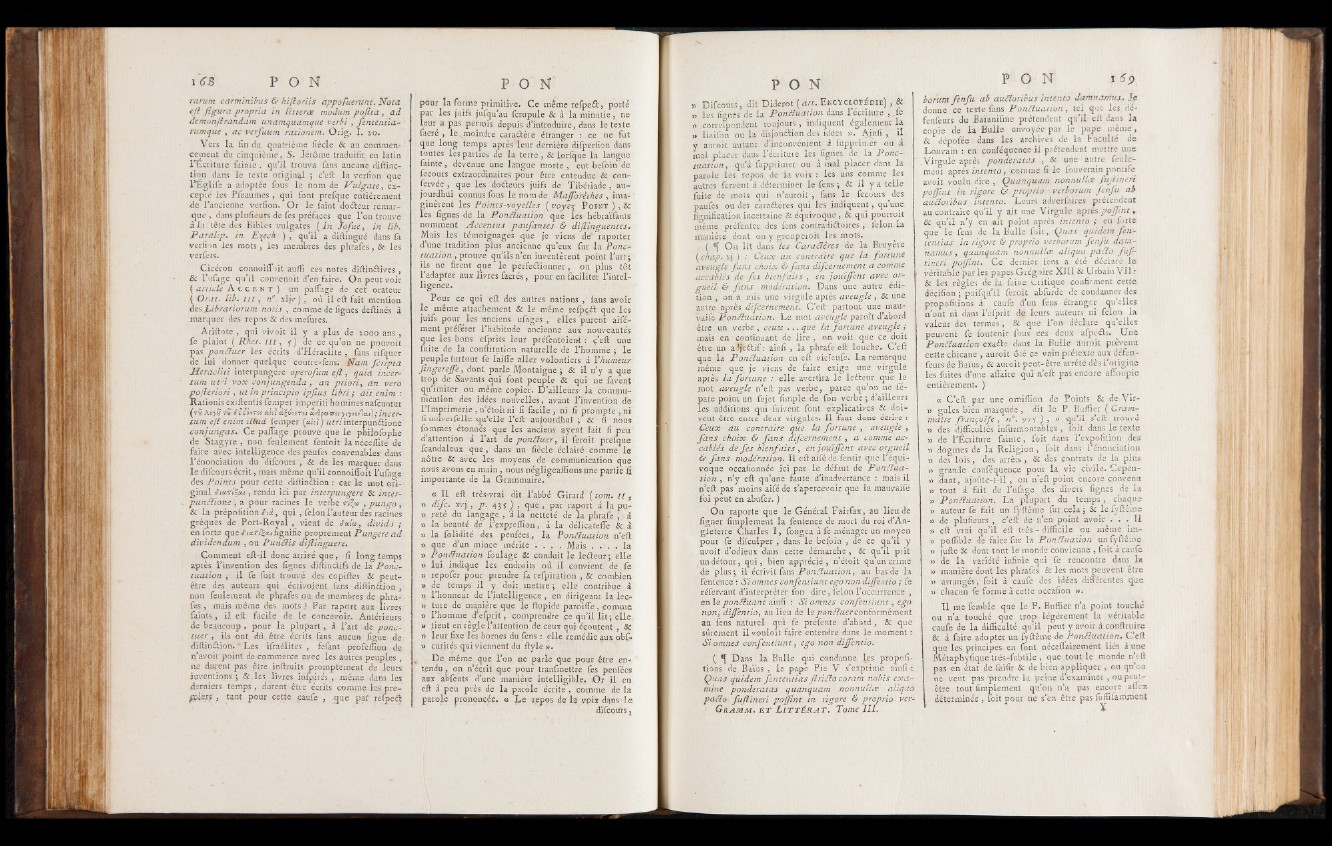 168 P O N
rarum carminibus & hiſtoriis appoſuerunt. Nota
eſt figura propria in litteræ modum poſita, ad
demonſtrandam unamquamque verbi, ſententia-
rumque, ac verſuum rationem. Orig. I. 20.
Vers la fin du quatrième ſiècle & au commen-
cement du cinquième, S. Jérôme traduiſit en latin
l'Écriture ſainte, qu'il trouva ſans aucune diſtinc-
tion dans le texte original ; c'eſt la verſion que
l'Égliſe a adoptée ſous le nom de Vulgate, ex-
cepté les Pſeaumes, qui ſont preſque entiérement
de l'ancienne verſion. Or le ſaint docteur remar-
que, dans pluſieurs de ſes préfaces que l'on trouve
à la tête des Bibles vulgates ( In Joſue, in lib.
Paralip. in Ezech. ), qu'il a diſtingué dans ſa
verſion les mots, les membres des phraſes, & les
verſets.
Cicéron connoiſſoit auſſi ces notes diſtinctives,
& l'uſage qu'il convenoit d'en faire. On peut voir
( article ACCENT ) un paſſage de cet orateur
( Orat. lib. III, n° xljv ), où il eſt fait mention
des Librariorum notis, comme de ſignes deſtinés à
marquer des repos & des meſures.
Ariſtote, qui vivoit il y a plus de 2000 ans,
ſe plaint ( Rhet. III, 5 ) de ce qu'on ne pouvoit
pas ponctuer les écrits d'Héraclite, ſans riſquer
de lui donner quelque contre-ſens. Nam ſcripta
Heracliti interpungere operoſum eſt, quia incer-
tum utri vox conjungenda, an priori, an vero
poſteriori, ut in principio ipſius libri ; ait enim :
Rationis exiſtentis ſemper imperiti homines naſcuntur
; incer-
tum eſt enim illud ſemper (ἀεὶ) utri interpunctione
conjungas. Ce paſſage prouve que le philoſophe
de Stagyre, non ſeulement ſentoit la néceſſité de
faire avec intelligence des pauſes convenables dans
l'énonciation du diſcours, & de les marquer dans
le diſcours écrit, mais même qu'il connoiſſoit l'uſage
des Points pour cette diſtinction : car le mot ori-
ginal διαστίξαι, rendu ici par interpungere & inter-
punctione, a pour racines le verbe στίζω, pungo,
& la prépoſition διά, qui, ſelon l'auteur des racines
grèques de Port-Royal, vient de δαίω, divido ;
en ſorte que διαστίξαι ſignifie proprement Pungere ad
dividendum, ou Punctis diſtinguere.
Comment eſt-il donc arrivé que, ſi long temps
après l'invention des ſignes diſtinctifs de la Ponc-
tuation, il ſe ſoit trouvé des copiſtes & peut-
être des auteurs qui écrivoient ſans diſtinction,
non ſeulement de phraſes ou de membres de phra-
ſes, mais même des mots ? Par raport aux livres
ſaints, il eſt facile de le concevoir. Antérieurs
de beaucoup, pour la plupart, à l'art de ponc-
tuer, ils ont dû être écrits ſans aucun ſigne de
diſtinction. Les iſraélites, feſant profeſſion de
n'avoir point de commerce avec les autres peuples,
ne durent pas être inſtruits promptement de leurs
inventions ; & les livres inſpirés, même dans les
derniers temps, durent être écrits comme les pre-
miers, tant pour cette cauſe, que par reſpect
P O N
pour la forme primitive. Ce même reſpect, porté
par les juifs juſqu'au ſcrupule & à la minutie, ne
leur a pas permis depuis d'introduire, dans le texte
ſacré, le moindre caractère étranger : ce ne fut
que long temps après leur dernière diſperſion dans
toutes les parties de la terre, & lorſque la langue
ſainte, devenue une langue morte, eut beſoin de
ſecours extraordinaires pour être entendue & con-
ſervée, que les docteurs juifs de Tibériade, au-
jourdhui connus ſous le nom de Maſſorèthes, ima-
ginèrent les Points-voyelles ( voyez POINT ), &
les ſignes de la Ponctuation que les hébraïſants
nomment Accentus pauſantes & diſtinguentes.
Mais les témoignages que je viens de raporter
d'une tradition plus ancienne qu'eux ſur la Ponc-
tuation, prouve qu'ils n'en inventèrent point l'art ;
ils ne firent que le perfectionner, ou plus tôt
l'adapter aux livres ſacrés, pour en faciliter l'intel-
ligence.
Pour ce qui eſt des autres nations, ſans avoir
le même attachement & le même reſpect que les
juifs pour les anciens uſages, elles purent aiſé-
ment préférer l'habitude ancienne aux nouveautés
que les bons eſprits leur préſentoient : ç'eſt une
ſuite de la conſtitution naturelle de l'homme ; le
peuple ſurtout ſe laiſſe aller volontiers à l'humeur
ſingereſſe, dont parle Montaigne ; & il n'y a que
trop de Savants qui ſont peuple & qui ne ſavent
qu'imiter ou même copier. D'ailleurs la commu-
nication des idées nouvelles, avant l'invention de
l'Imprimerie, n'étoit ni ſi facile, ni ſi prompte, ni
ſi univerſelle qu'elle l'eſt aujourdhui ; & ſi nous
ſommes étonnés que les anciens ayent fait ſi peu
d'attention à l'art de ponctuer, il ſeroit preſque
ſcandaleux que, dans un ſiècle éclairé comme le
nôtre & avec les moyens de communication que
nous avons en main, nous négligeaſſions une partie ſi
importante de la Grammaire.
« Il eſt très-vrai dit l'abbé Girard ( tom. II,
» diſc. xvj, p. 435 ), que, par raport à la pu-
» reté du langage, à la netteté de la phraſe, à
» la beauté de l'expreſſion, à la délicateſſe & à
» la ſolidité des penſées, la Ponctuation n'eſt
» que d'un mince mérite . . . . Mais . . . . la
» Ponctuation ſoulage & conduit le lecteur ; elle
» lui indique les endroits où il convient de ſe
» repoſer pour prendre ſa reſpiration, & combien
» de temps il y doit mettre ; elle contribue à
» l'honneur de l'intelligence, en dirigeant la lec-
» ture de manière que le ſtupide paroiſſe, comme
» l'homme d'eſprit, comprendre ce qu'il lit ; elle
» tient en règle l'attention de ceux qui écoutent, &
» leur fixe les bornes du ſens : elle remédie aux obſ-
» curités qui viennent du ſtyle ».
De même que l'on ne parle que pour être en-
tendu, on n'écrit que pour tranſmettre ſes penſées
aux abſents d'une manière intelligible. Or il en
eſt à peu près de la parole écrite, comme de la
parole prononcée. « Le repos de la voix dans le
diſcours,
P O N
» Diſcours, dit Diderot ( art. ENCYCLOPÉDIE ), &
» les ſignes de la Ponctuation dans l'écriture, ſe
» correſpondent toujours, indiquent également la
» liaiſon ou la disjonction des idées ». Ainſi, il
y auroit autant d'inconvénient à ſupprimer ou à
mal placer dans l'écriture les ſignes de la Ponc-
tuation, qu'à ſupprimer ou à mal placer dans la
parole les repos de la voix : les uns comme les
autres ſervent à déterminer le ſens ; & il y a telle
ſuite de mots qui n'auroit, ſans le ſecours des
pauſes ou des caractères qui les indiquent, qu'une
ſignification incertaine & équivoque, & qui pourroit
même préſenter des ſens contradictoires, ſelon la
manière dont on y groupperoit les mots.
( ¶ On lit dans les Caractères de la Bruyère
( chap. xj ) : Ceux au contraire que la fortune
aveugle ſans choix & ſans diſcernement a comme
accablés de ſes bienfaits, en jouiſſent avec or-
gueil & ſans modération. Dans une autre édi-
tion, on a mis une virgule après aveugle, & une
autre après diſcernement. C'eſt partout une mau-
vaiſe Ponctuation. Le mot aveugle paroît d'abord
être un verbe, ceux . . . que la fortune aveugle ;
mais en continuant de lire, on voit que ce doit
être un adjectif : ainſi, la phraſe eſt louche. C'eſt
que la Ponctuation en eſt vicieuſe. La remarque
même que je viens de faire exige une virgule
après la fortune : elle avertira le lecteur que le
mot aveugle n'eſt pas verbe, parce qu'on ne ſé-
pare point un ſujet ſimple de ſon verbe ; d'ailleurs
les additions qui ſuivent ſont explicatives & doi-
vent être entre deux virgules. Il faut donc écrire :
Ceux au contraire que la fortune, aveugle,
ſans choix & ſans diſcernement, a comme ac-
cablés de ſes bienfaits, en jouiſſent avec orgueil
& ſans modération. Il eſt aiſé de ſentir que l'équi-
voque occaſionnée ici par le défaut de Ponctua-
tion, n'y eſt qu'une faute d'inadvertance : mais il
n'eſt pas moins aiſé de s'apercevoir que la mauvaiſe
foi peut en abuſer. )
On raporte que le Général Fairfax, au lieu de
ſigner ſimplement la ſentence de mort du roi d'An-
gleterre Charles I, ſongea à ſe ménager un moyen
pour ſe diſculper, dans le beſoin, de ce qu'il y
avoit d'odieux dans cette démarche, & qu'il prit
un détour, qui, bien apprécié, n'étoit qu'un crime
de plus ; il écrivit ſans Ponctuation, au bas de la
ſentence : Si omnes conſentiunt ego non diſſentio ; ſe
réſervant d'interpréter ſon dire, ſelon l'occurrence,
en le ponctuant ainſi : Si omnes conſentiunt, ego
non, diſſentio, au lieu de le ponctuer conformément
au ſens naturel qui ſe préſente d'abord, & que
sûrement il vouloit faire entendre dans le moment :
Si omnes conſentiunt, ego non diſſentio.
( ¶ Dans la Bulle qui condanne les propoſi-
tions de Baïus, le pape Pie V s'exprime ainſi :
Quas quidem ſententias ſtricto coram nobis exa-
mine ponderatas quanquam nonnullæ aliquo
pacto ſuſtineri poſſint in rigore & proprio ver-
GRAMM. ET LITTÉRAT. Tome III.
P O N 169
borum ſenſu ab auctoribus intento damnamus. Je
donne ce texte ſans Ponctuation, tel que les dé-
fenſeurs du Baïaniſme prétendent qu'il eſt dans la
copie de la Bulle envoyée par le pape même,
& dépoſée dans les archives de la Faculté de
Louvain : en conſéquence il prétendent mettre une
Virgule après ponderatas, & une autre ſeule-
ment après intento, comme ſi le ſouverain pontife
avoit voulu dire, Quanquam nonnullæ ſuſtineri
poſſint in rigore & proprio verborum ſenſu ab
auctoribus intento. Leurs adverſaires prétendent
au contraire qu'il y ait une Virgule après poſſint,
& qu'il n'y en ait point après intento ; en ſorte
que le ſens de la Bulle ſoit, Quas quidem ſen-
tentias in rigore & proprio verborum ſenſu dam-
namus, quanquam nonnullæ aliquo pacto ſuſ-
tineri poſſint. Ce dernier ſens a été déclaré le
véritable par les papes Grégoire XIII & Urbain VII :
& les règles de la ſaine Critique confirment cette
déciſion ; puiſqu'il ſeroit abſurde de condanner des
propoſitions à cauſe d'un ſens étranger qu'elles
n'ont ni dans l'eſprit de leurs auteurs ni ſelon la
valeur des termes, & que l'on déclare qu'elles
peuvent ſe ſoutenir ſous ces deux aſpects. Une
Ponctuation exacte dans la Bulle auroit prévenu
cette chicane, auroit ôté ce vain prétexte aux défen-
ſeurs de Baïus, & auroit peut-être arrêté dès l'origine
les ſuites d'une affaire qui n'eſt pas encore aſſoupie
entièrement. )
« C'eſt par une omiſſion de Points & de Vir-
» gules bien marquée, dit le P. Buffier ( Gram-
maire françoiſe, n°. 975 ), » qu'il s'eſt trouvé
» des difficultés inſurmontables, ſoit dans le texte
» de l'Écriture ſainte, ſoit dans l'expoſition des
» dogmes de la Religion, ſoit dans l'énonciation
» des lois, des arrêts, & des contrats de la plus
» grande conſéquence pour la vie civile. Cepen-
» dant, ajoûte-t-il, on n'eſt point encore convenu
» tout à fait de l'uſage des divers ſignes de la
» Ponctuation. La plupart du temps, chaque
» auteur ſe fait un ſyſtême ſur cela ; & le ſyſtême
» de pluſieurs, c'eſt de n'en point avoir . . . Il
» eſt vrai qu'il eſt très-difficile ou même im-
» poſſible de faire ſur la Ponctuation un ſyſtême
» juſte & dont tout le monde convienne, ſoit à cauſe
» de la variété infinie qui ſe rencontre dans la
» manière dont les phraſes & les mots peuvent être
» arrangés, ſoit à cauſe des idées différentes que
» chacun ſe forme à cette occaſion ».
Il me ſemble que le P. Buffier n'a point touché
ou n'a touché que trop légèrement la véritable
cauſe de la difficulté qu'il peut y avoir à conſtruire
& à faire adopter un ſyſtême de Ponctuation. C'eſt
que les principes en ſont néceſſairement liés à une
Métaphyſique très-ſubtile, que tout le monde n'eſt
pas en état de ſaiſir & de bien appliquer, ou qu'on
ne veut pas prendre la peine d'examiner, ou peut-
être tout ſimplement qu'on n'a pas encore aſſez
déterminée, ſoit pour ne s'en être pas ſuffiſamment
Y